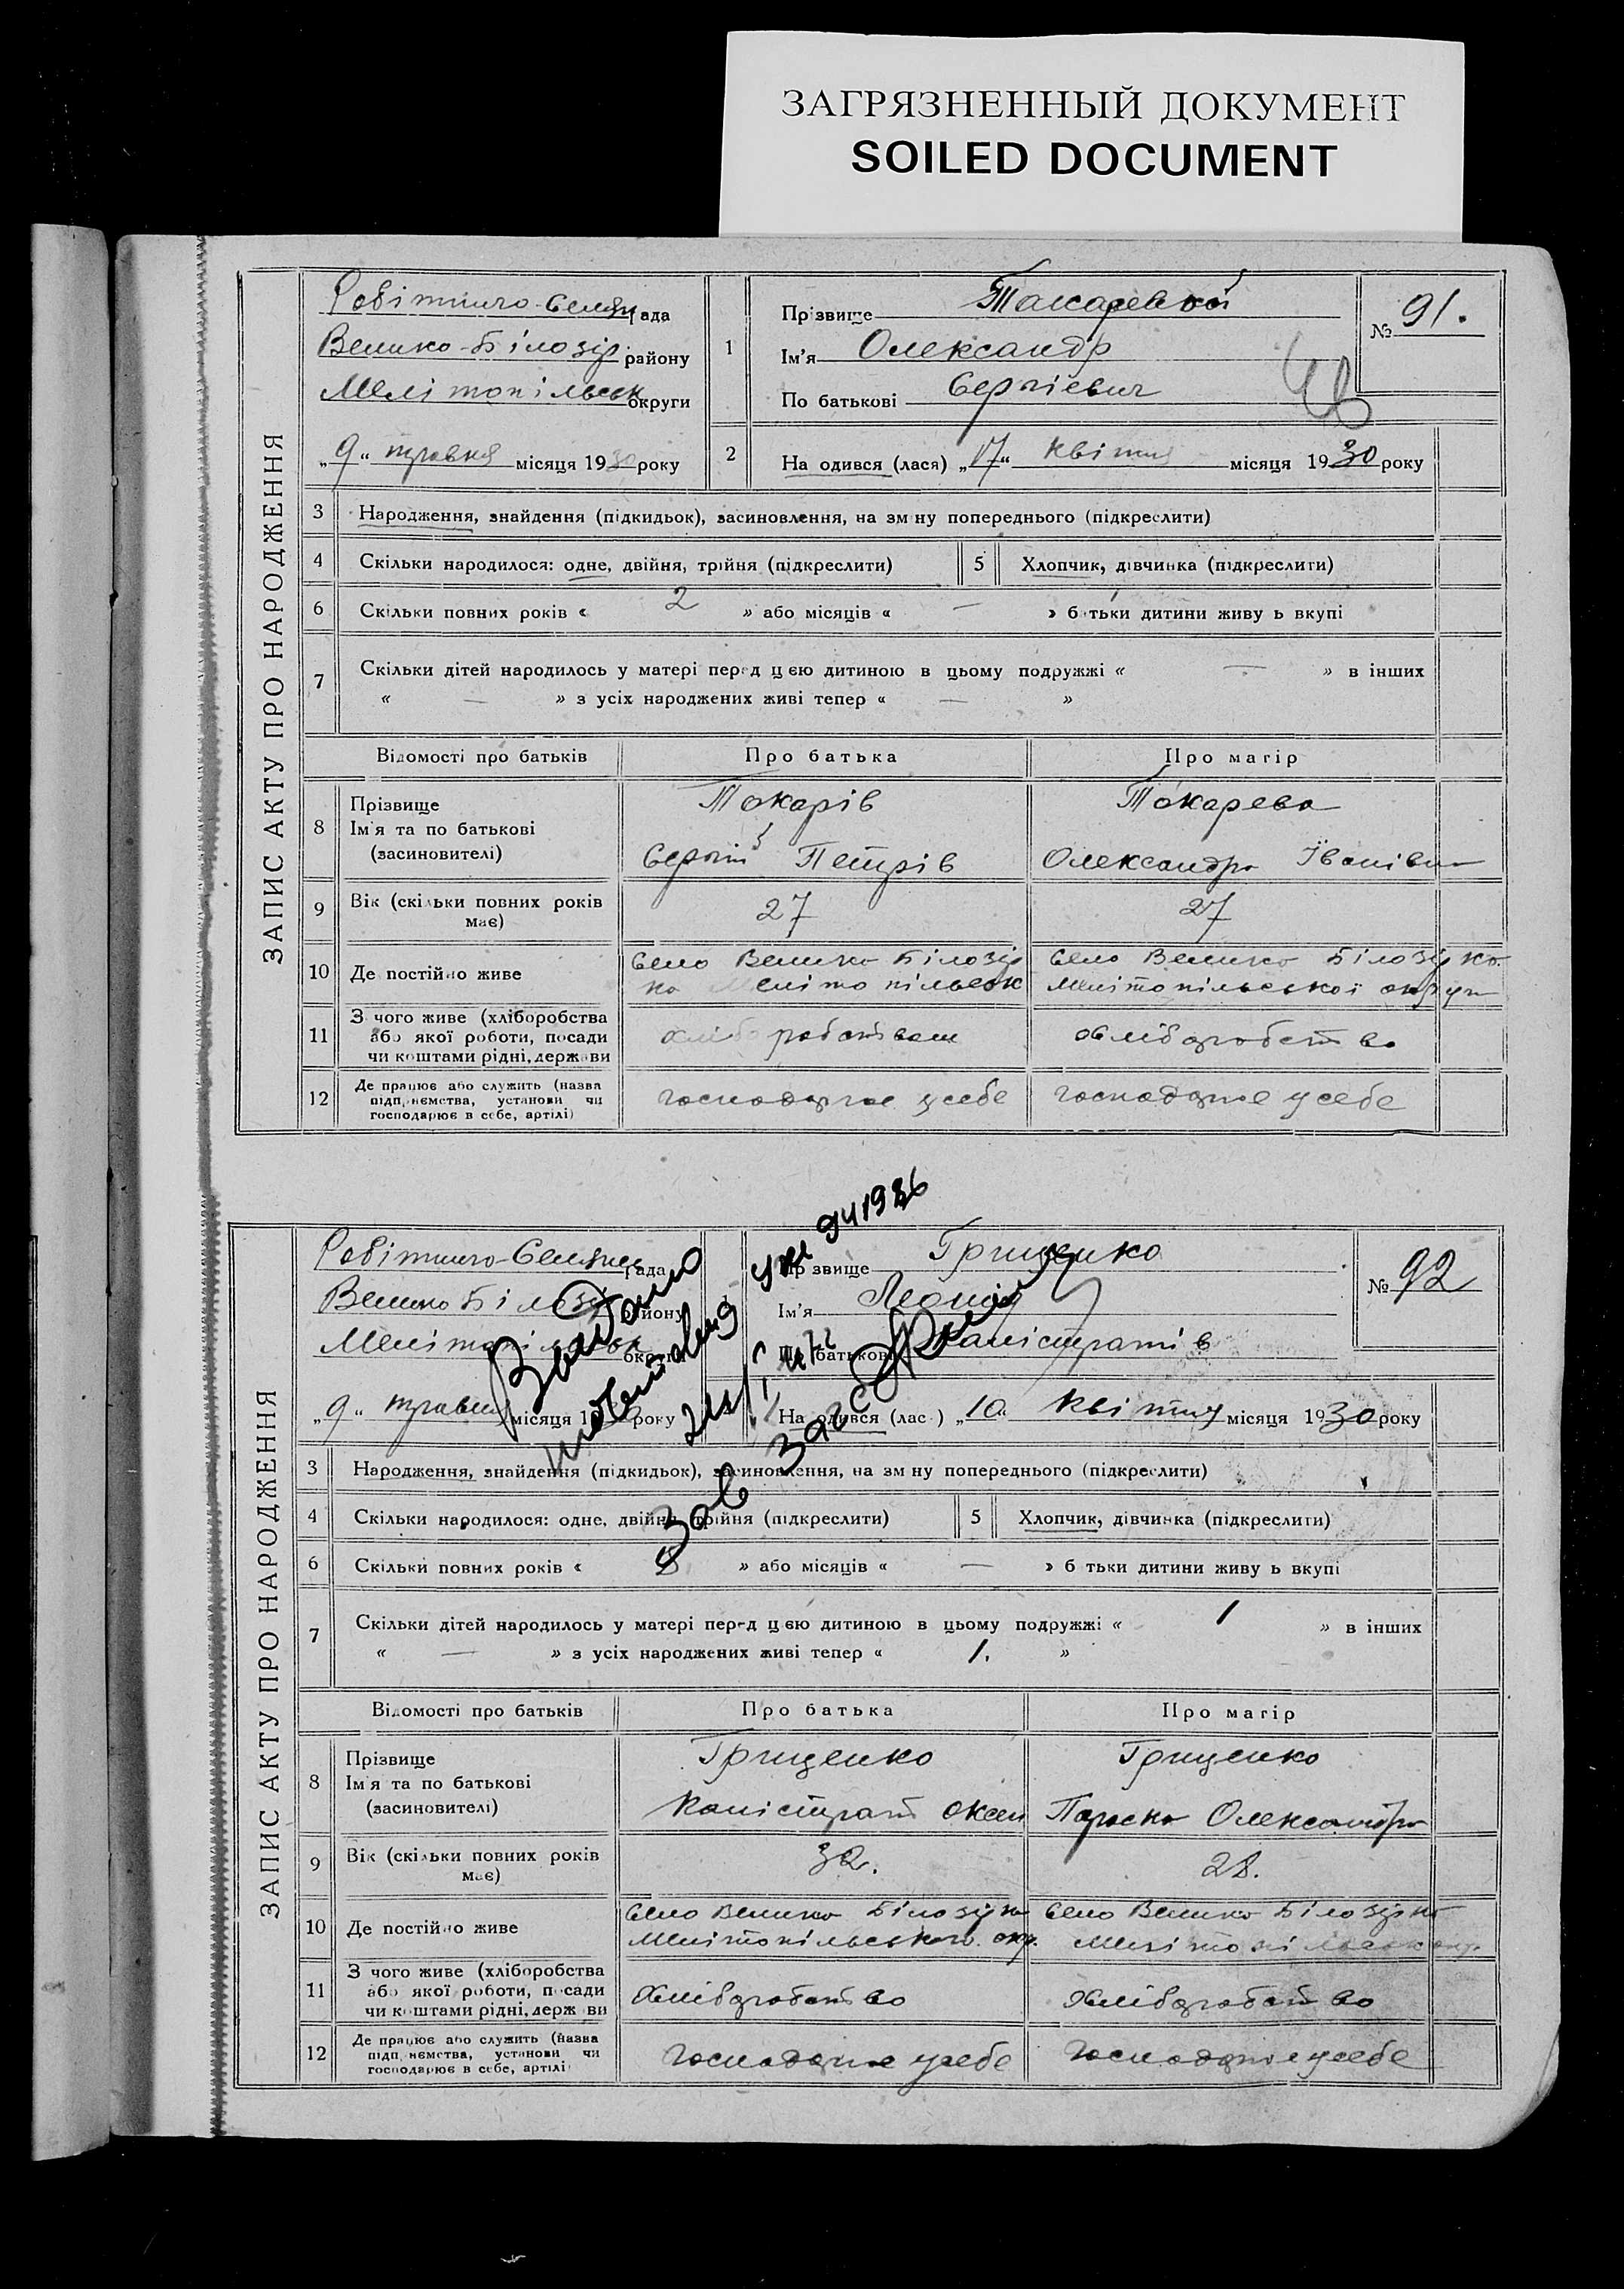 ЗАГРЯЗНЕННЫЙ ДОКУМЕНТ
SOILED DOCUMENT
ЗАПИС АКТУ ПРО НАРОДЖЕННЯ
Рада
Велико-Білозір. району
Мелітопільськ округи
„9“ травня місяця 1930 року
1
Прізвище
Ім'я Олександр
По батькові Сергієвич
№ 91.
2 На одився (лася) „17“ квітня місяця 1930 року
3 Народження, знайдення (підкидьок), засиновлення, на зм ну попереднього (підкреслити)
4 Скільки народилося: одне, двійня, трійня (підкреслити) 5 Хлопчик, дівчинка (підкреслити)
6 Скільки повних років « 2 » або місяців « — » б тьки дитини живу ь вкупі
7 Скільки дітей народилось у матері перед цею дитиною в цьому подружжі « — » в інших
« — » з усіх народжених живі тепер « — »
Відомості про батьків Про батька Про матір
8 Прізвище Токарів Токарева
Ім'я та по батькові
(засновителі) Сергій Петрів Олександра Іванівна
9 Вік (скільки повних років має) 27 27
10 Де постійно живе Село Велико Білозір Село Велико Білозірка
ка Мелітопільськ Мелітопільської округи
11 З чого живе (хліборобства
або якої роботи, посади
чи коштами рідні, держави хліборобством хліборобство
12 Де працює або служить (назва
підприємства, установи чи
господарює в себе, артілі) господарює усебе господарює усебе
ЗАПИС АКТУ ПРО НАРОДЖЕННЯ
Рада
Велико Білозір району
Мелітопільськ округи
„9“ травня місяця 1930 року
Прізвище Грищенко
Ім'я Леонід
По батькові Каністратів
№ 92
На одився (лас ) „10“ квітня місяця 1930 року
Видано
Зав загс
3 Народження, знайдення (підкидьок), засиновлення, на зм ну попереднього (підкреслити)
4 Скільки народилося: одне, двійня, трійня (підкреслити) 5 Хлопчик, дівчинка (підкреслити)
6 Скільки повних років « » або місяців « — » б тьки дитини живу ь вкупі
7 Скільки дітей народилось у матері перед цею дитиною в цьому подружжі « 1 » в інших
« — » з усіх народжених живі тепер « 1. »
Відомості про батьків Про батька Про матір
8 Прізвище Грищенко Грищенко
Ім'я та по батькові
(засновителі) Каністрат Оксен Параска Олександра
9 Вік (скільки повних років має) 32. 28.
10 Де постійно живе Село Велико Білозірка Село Велико Білозірка
Мелітопільського окр. Мелітопільськ окр.
11 З чого живе (хліборобства
або якої роботи, посади
чи коштами рідні, держ ви Хліборобство Хліборобство
12 Де працює або служить (назва
підприємства, установи чи
господарює в себе, артілі Господарює усебе Господарює усебе